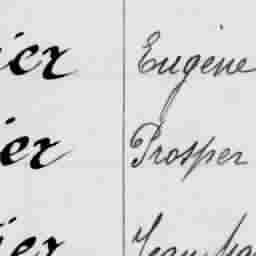 ier Eugène
ier Prosper
ier